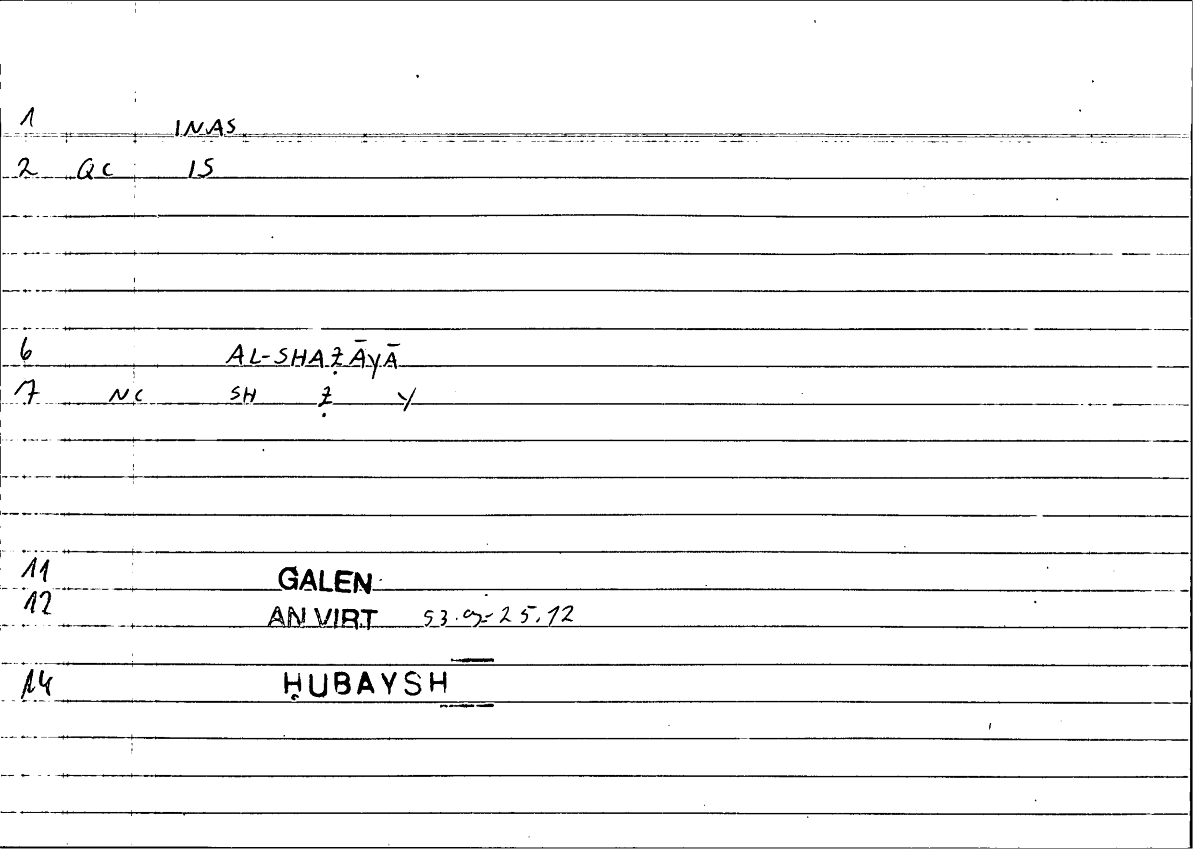 1 INAS
2 QC IS
6 AL-SHAẒĀYĀ
7 NC SH Ẓ Y
11 GALEN
12 AN VIRT 53. 25.12
14 ḤUBAYSH